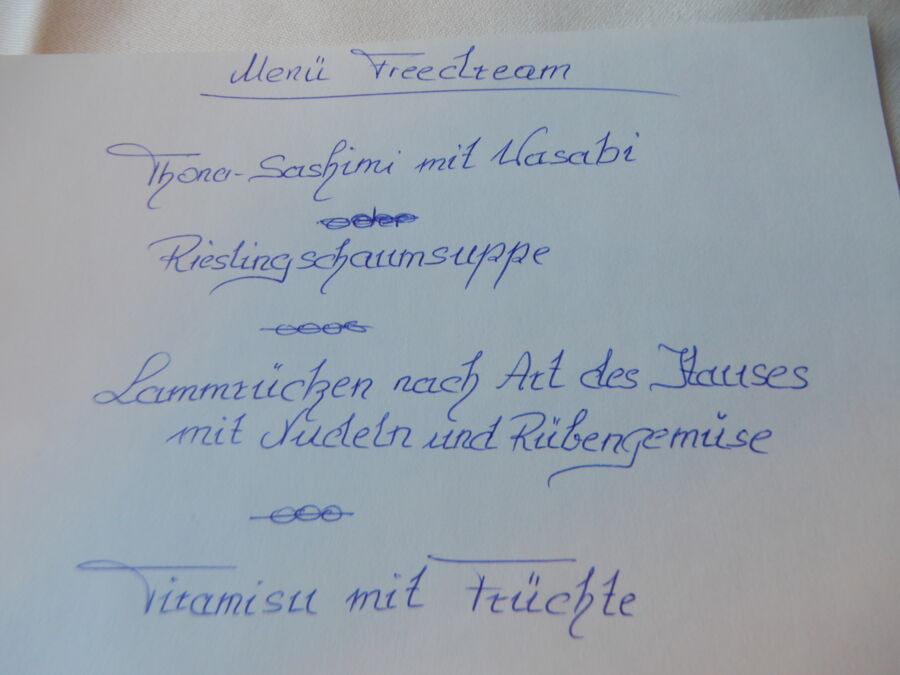 Menü Freedream
Thona-Sashimi mit Wasabi
oder
Rieslingschaumsuppe
Lammrücken nach Art des Hauses
mit Nudeln und Rübengemüse
Tiramisu mit Früchte